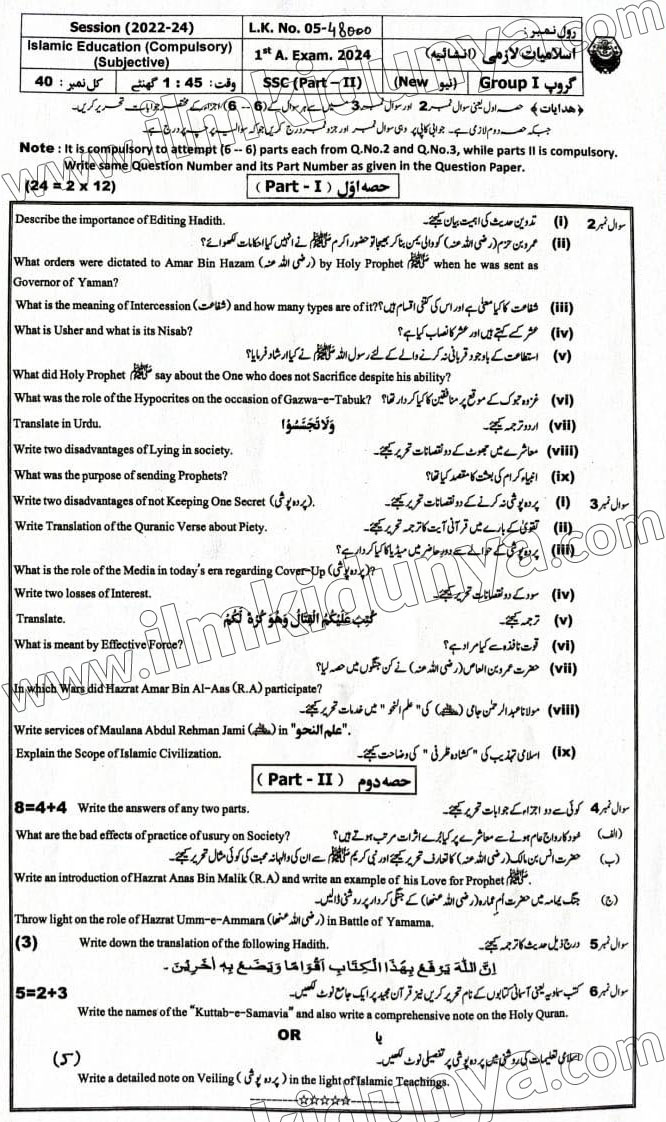 Session (2022-24) L.K. No. 05-48000 رول نمبر:
Islamic Education (Compulsory) (Subjective) 1st A. Exam. 2024 اسلامیات لازمی (انشائیہ)
کل نمبر: 40 وقت: 1:45 گھنٹے SSC (Part – II) (New نیو) Group I گروپ
﴿ہدایات﴾ حصہ اول یعنی سوال نمبر 2 اور سوال نمبر 3 میں سے ہر سوال کے (6 -- 6) اجزاء کے مختصر جوابات تحریر کریں۔
جبکہ حصہ دوم لازمی ہے۔ جوابی کاپی پر وہی سوال نمبر اور جزو نمبر درج کریں جو کہ سوالیہ پرچے پر درج ہے۔
Note : It is compulsory to attempt (6 -- 6) parts each from Q.No.2 and Q.No.3, while parts II is compulsory.
Write same Question Number and its Part Number as given in the Question Paper.
(24 = 2 x 12) (Part - I) حصہ اوّل
Describe the importance of Editing Hadith. سوال نمبر 2 (i) تدوین حدیث کی اہمیت بیان کیجئے۔
(ii) عمرو بن حزم (رضی اللہ عنہ) کو والی یمن بنا کر بھیجا تو حضور اکرم ﷺ نے انہیں کیا احکامات لکھوائے؟
What orders were dictated to Amar Bin Hazam (رضی اللہ عنہ) by Holy Prophet ﷺ when he was sent as
Governor of Yaman?
What is the meaning of Intercession (شفاعت) and how many types are of it? (iii) شفاعت کا کیا معنٰی ہے اور اس کی کتنی اقسام ہیں؟
What is Usher and what is its Nisab? (iv) عشر کسے کہتے ہیں اور عشر کا نصاب کیا ہے؟
(v) استطاعت کے باوجود قربانی نہ کرنے والے کے لئے رسول اللہ ﷺ نے کیا ارشاد فرمایا؟
What did Holy Prophet ﷺ say about the One who does not Sacrifice despite his ability?
What was the role of the Hypocrites on the occasion of Gazwa-e-Tabuk? (vi) غزوہ تبوک کے موقع پر منافقین کا کیا کردار تھا؟
Translate in Urdu. وَلَا تَجَسَّسُوْا (vii) اردو ترجمہ کیجئے۔
Write two disadvantages of Lying in society. (viii) معاشرے میں جھوٹ کے دو نقصانات تحریر کیجئے۔
What was the purpose of sending Prophets? (ix) انبیاء کرام کی بعثت کا مقصد کیا تھا؟
Write two disadvantages of not Keeping One Secret (پردہ پوشی). سوال نمبر 3 (i) پردہ پوشی نہ کرنے کے دو نقصانات تحریر کیجئے۔
Write Translation of the Quranic Verse about Piety. (ii) تقویٰ کے بارے میں قرآنی آیت کا ترجمہ تحریر کیجئے۔
(iii) پردہ پوشی کے حوالے سے دور حاضر میں میڈیا کا کیا کردار ہے؟
What is the role of the Media in today's era regarding Cover-Up (پردہ پوشی)?
Write two losses of Interest. (iv) سود کے دو نقصانات تحریر کیجئے۔
Translate. كُتِبَ عَلَيْكُمُ الْقِتَالُ وَهُوَ كُرْهٌ لَّكُمْ (v) ترجمہ کیجئے۔
What is meant by Effective Force? (vi) قوت نافذہ سے کیا مراد ہے؟
(vii) حضرت عمرو بن العاص (رضی اللہ عنہ) نے کن جنگوں میں حصہ لیا؟
In which Wars did Hazrat Amar Bin Al-Aas (R.A) participate?
(viii) مولانا عبدالرحمٰن جامی (رحمۃ اللہ علیہ) کی "علم النحو" میں خدمات تحریر کیجئے۔
Write services of Maulana Abdul Rehman Jami (رحمۃ اللہ علیہ) in "علم النحو".
Explain the Scope of Islamic Civilization. (ix) اسلامی تہذیب کی "کشادہ ظرفی" کی وضاحت کیجئے۔
(Part - II) حصہ دوم
8=4+4 Write the answers of any two parts. سوال نمبر 4 کوئی سے دو اجزاء کے جوابات تحریر کیجئے۔
What are the bad effects of practice of usury on Society? (الف) سود کا رواج عام ہونے سے معاشرے پر کیا برے اثرات مرتب ہوتے ہیں؟
(ب) حضرت انس بن مالک (رضی اللہ عنہ) کا تعارف تحریر کیجئے اور نبی کریم ﷺ سے ان کی والہانہ محبت کی کوئی مثال تحریر کیجئے۔
Write an introduction of Hazrat Anas Bin Malik (R.A) and write an example of his Love for Prophet ﷺ.
(ج) جنگ یمامہ میں حضرت اُمِ عمارہ (رضی اللہ عنھا) کے جنگی کردار پر روشنی ڈالیں۔
Throw light on the role of Hazrat Umm-e-Ammara (رضی اللہ عنھا) in Battle of Yamama.
(3) Write down the translation of the following Hadith. سوال نمبر 5 درج ذیل حدیث کا ترجمہ کیجئے۔
اِنَّ اللّٰهَ يَرْفَعُ بِهٰذَا الْكِتَابِ اَقْوَامًا وَّيَضَعُ بِهٖ اٰخَرِيْنَ۔
5=2+3 سوال نمبر 6 کتب سماویہ یعنی آسمانی کتابوں کے نام تحریر کریں نیز قرآن مجید پر ایک جامع نوٹ لکھیں۔
Write the names of the "Kuttab-e-Samavia" and also write a comprehensive note on the Holy Quran.
OR یا
(5) اسلامی تعلیمات کی روشنی میں پردہ پوشی پر تفصیلی نوٹ لکھیں۔
Write a detailed note on Veiling (پردہ پوشی) in the light of Islamic Teachings.
www.ilmkidunya.com
www.ilmkidunya.com
www.ilmkidunya.com